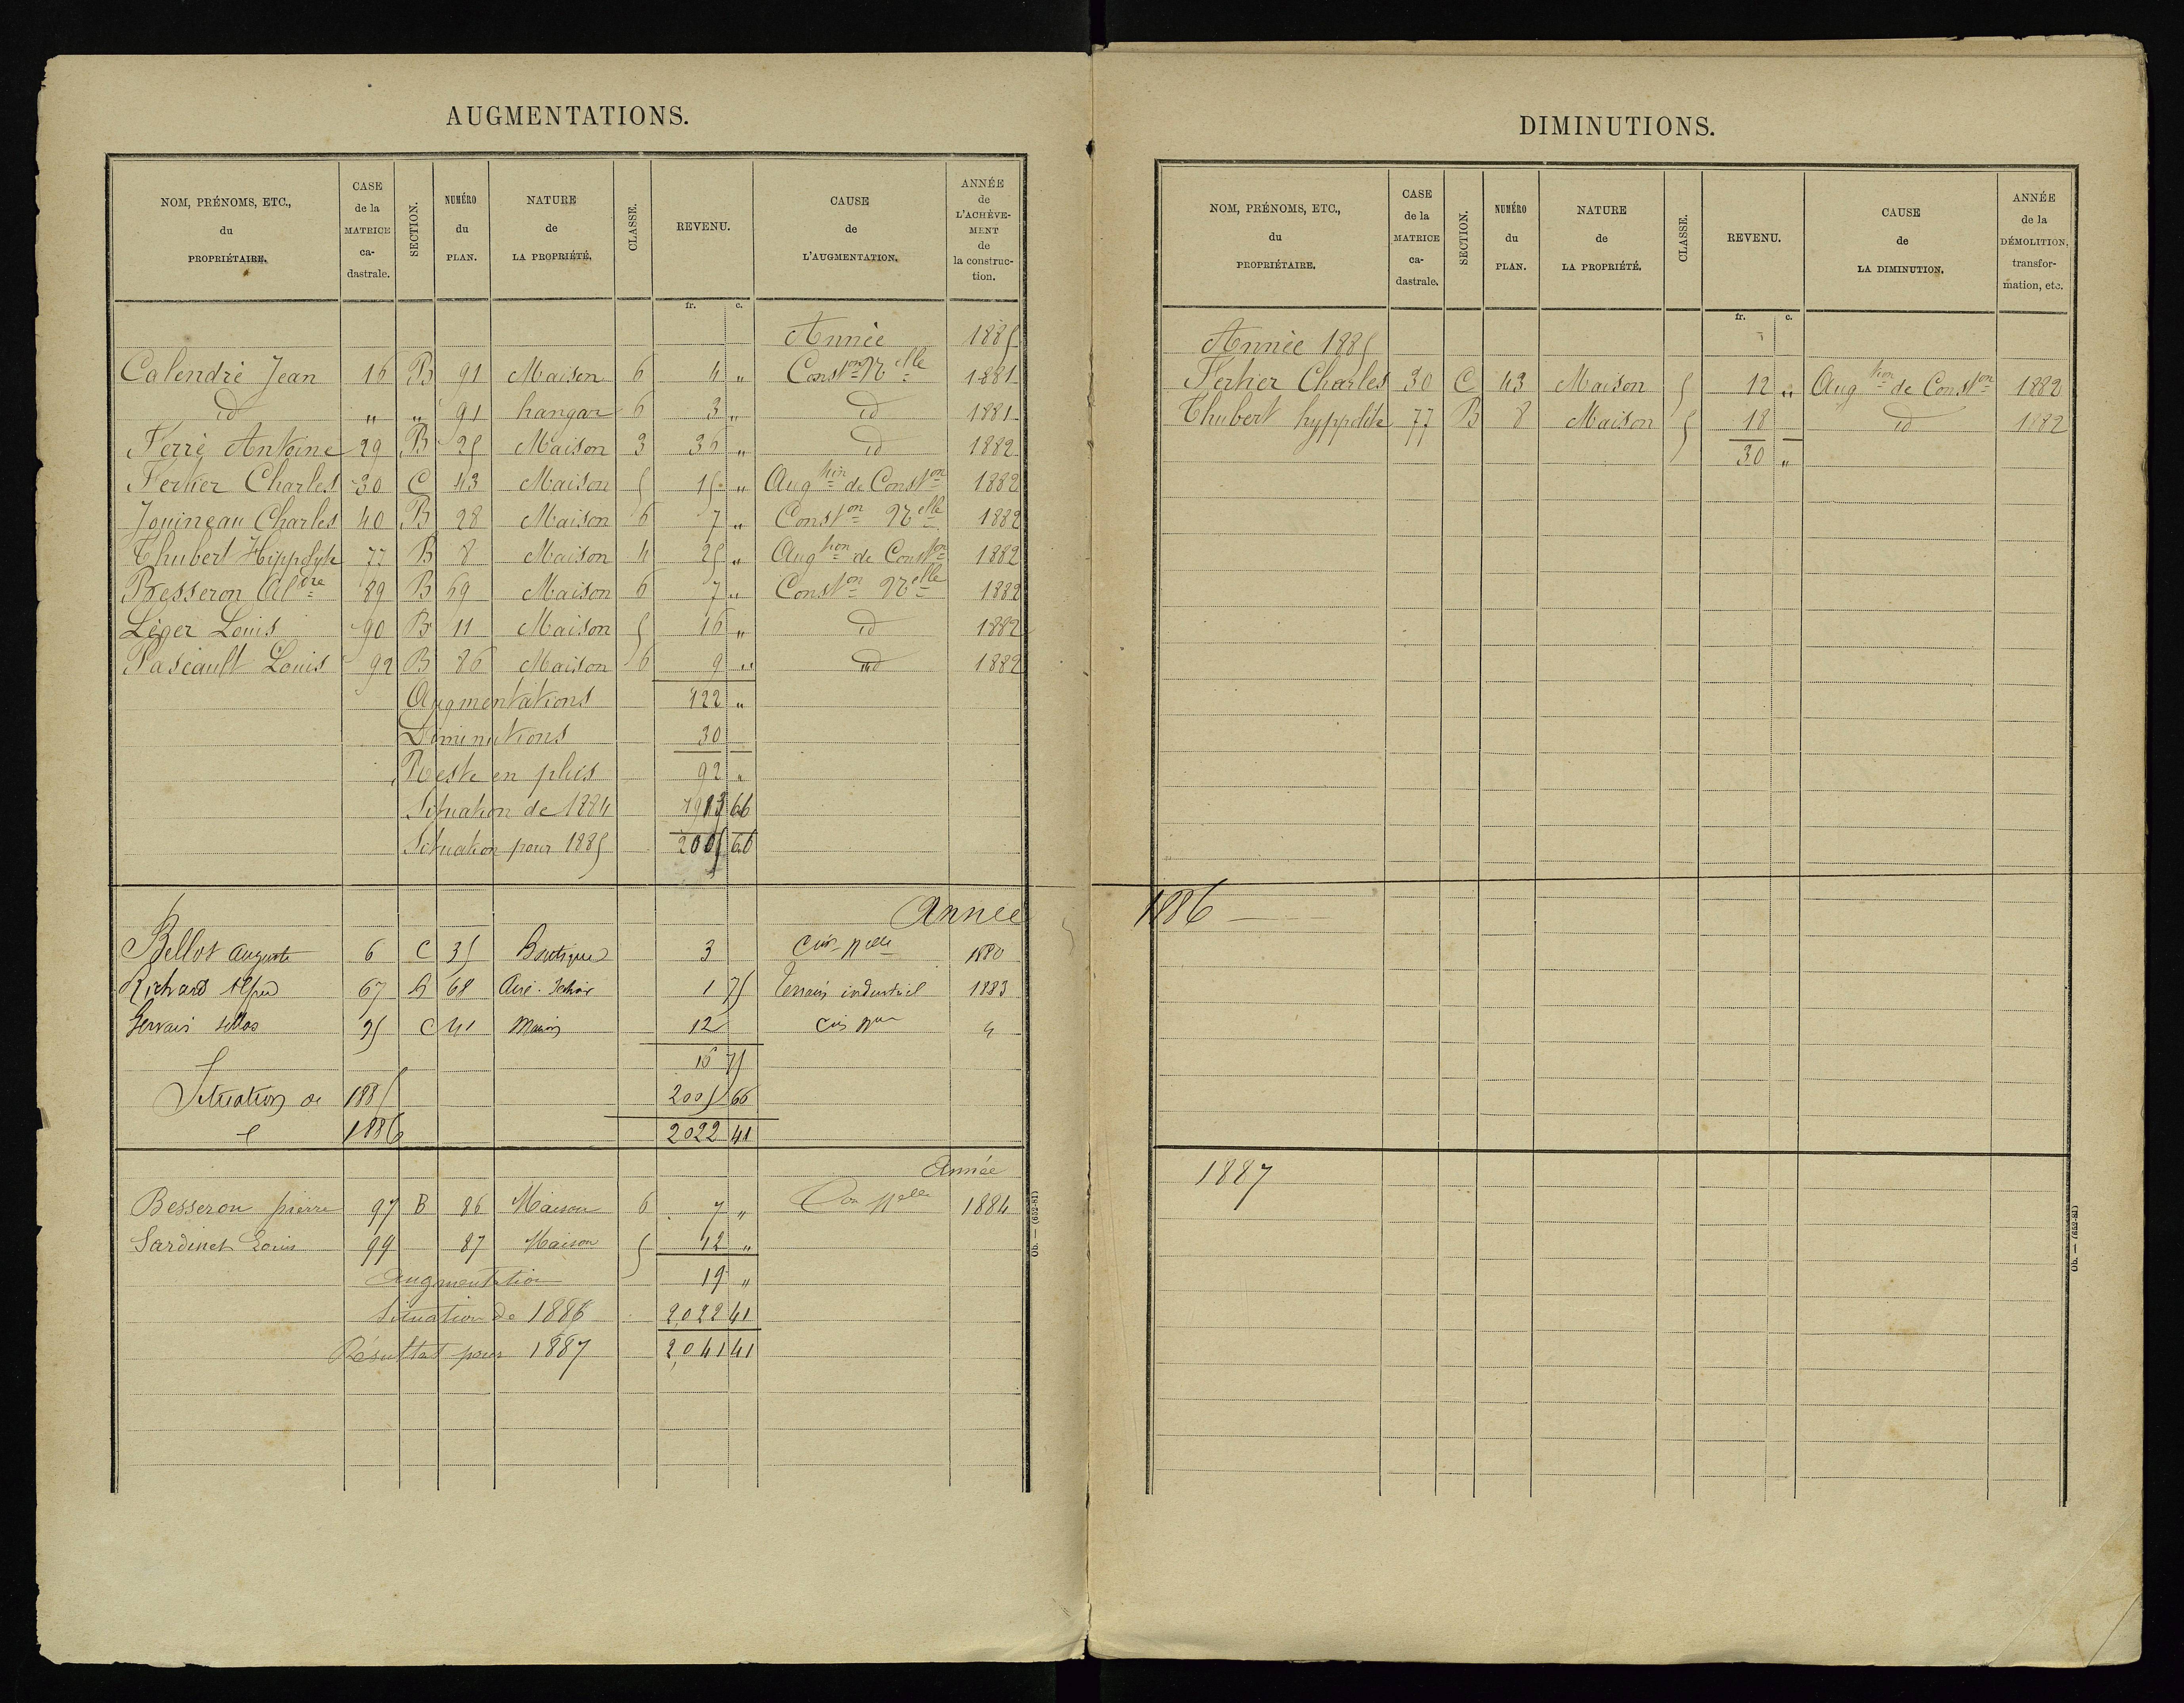 AUGMENTATIONS.
NOM, PRÉNOMS, ETC., du PROPRIÉTAIRE. CASE de la MATRICE ca- dastrale. SECTION. NUMÉRO du PLAN. NATURE de LA PROPRIÉTÉ. CLASSE. REVENU. CAUSE de L'AUGMENTATION. ANNÉE de L'ACHÈVE- MENT de la construc- tion.
fr. c.
Année 1885
Calendré Jean 16 B 91 Maison 6 4 " Conston Nelle 1881
id " " 91 hangar 6 3 " id 1881
Ferré Antoine 29 B 25 Maison 3 36 " id 1882
Fertier Charles 30 C 43 Maison 5 15 " Augtion de Conston 1882
Jouineau Charles 40 B 28 Maison 6 7 " Conston Nelle 1882
Thubert Hippolyte 77 B 8 Maison 4 25 " Augtion de Conston 1882
Besseron Aldre 89 B 69 Maison 6 7 " Conston Nelle 1882
Léger Louis 90 B 11 Maison 5 16 " id 1882
Pascault Louis 92 B 86 Maison 6 9 " id 1882
Augmentations 122 "
Diminutions 30
Reste en plus 92 "
Situation de 1884 1913 66
Situation pour 1885 2005 66
Année
Bellot Auguste 6 C 35 Boutique 3 1880
Richard Alfred 67 B 68 1 75 Terrain industriel 1883
Gervais C 41 Maison 12
16 75
Situation de 1885 2005 66
1886 2022 41
Année
Besseron pierre 97 B 86 Maison 6 7 " Con Nelle 1884
Sardinet Louis 99 87 Maison 5 12 "
Augmentation 19 "
Situation de 1886 2,022 41
Résultat pour 1887 2,041 41
Ob. — (652-81)
DIMINUTIONS.
NOM, PRÉNOMS, ETC., du PROPRIÉTAIRE. CASE de la MATRICE ca- dastrale. SECTION. NUMÉRO du PLAN. NATURE de LA PROPRIÉTÉ. CLASSE. REVENU. CAUSE de LA DIMINUTION. ANNÉE de la DÉMOLITION, transfor- mation, etc.
fr. c.
Année 1885
Fertier Charles 30 C 43 Maison 5 12 " Augtion de Conston 1882
Thubert hyppolite 77 B 8 Maison 5 18 id 1882
30 "
1886
1887
Ob. — (652-81)